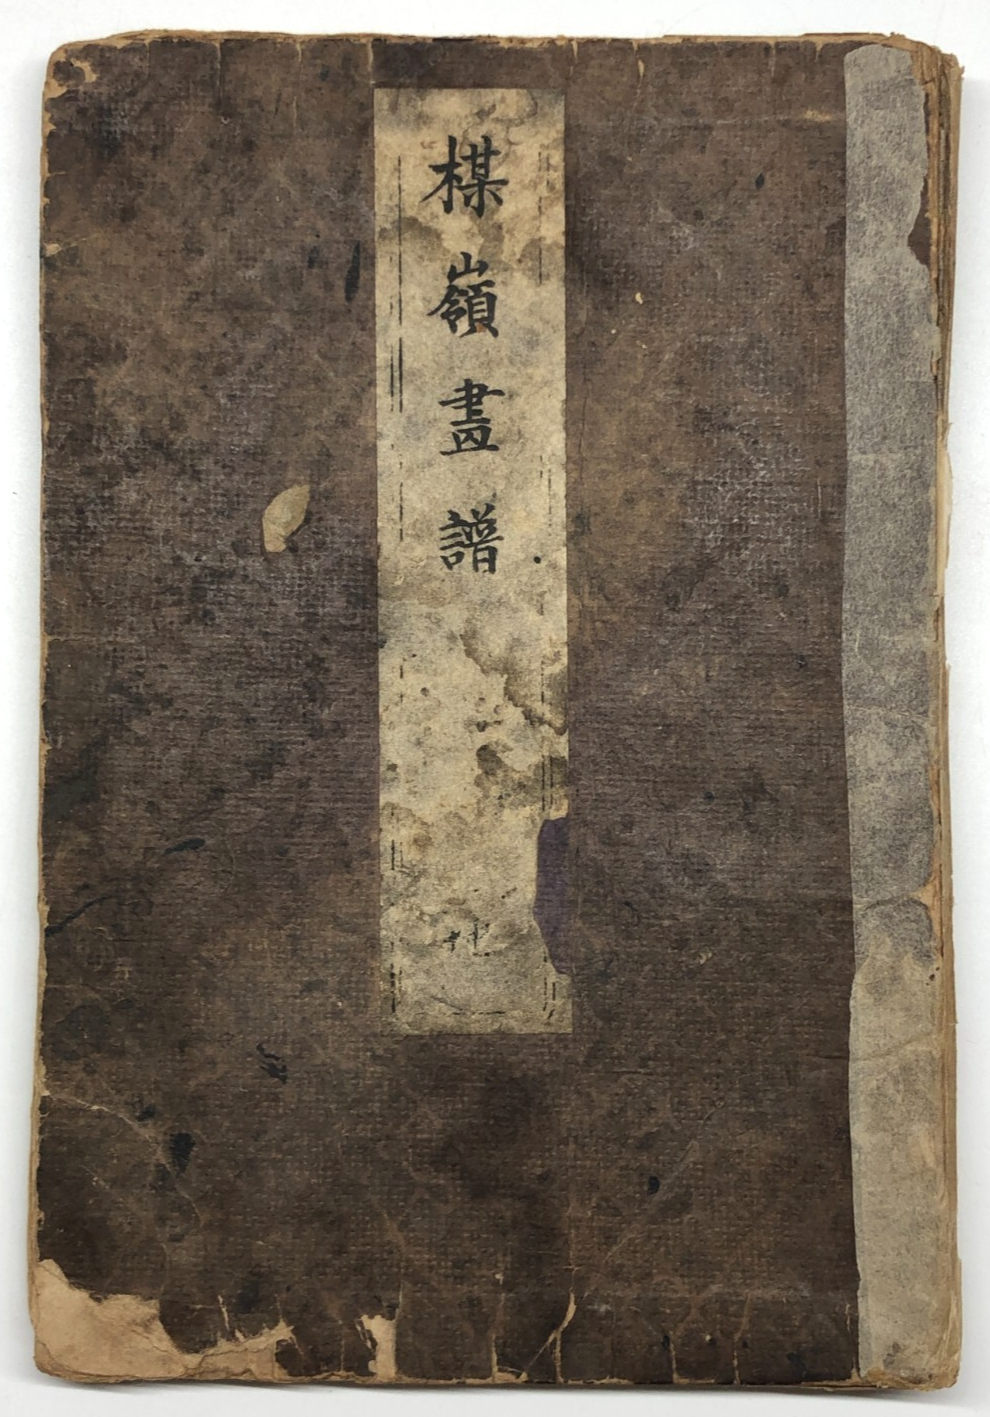 楳嶺畫譜